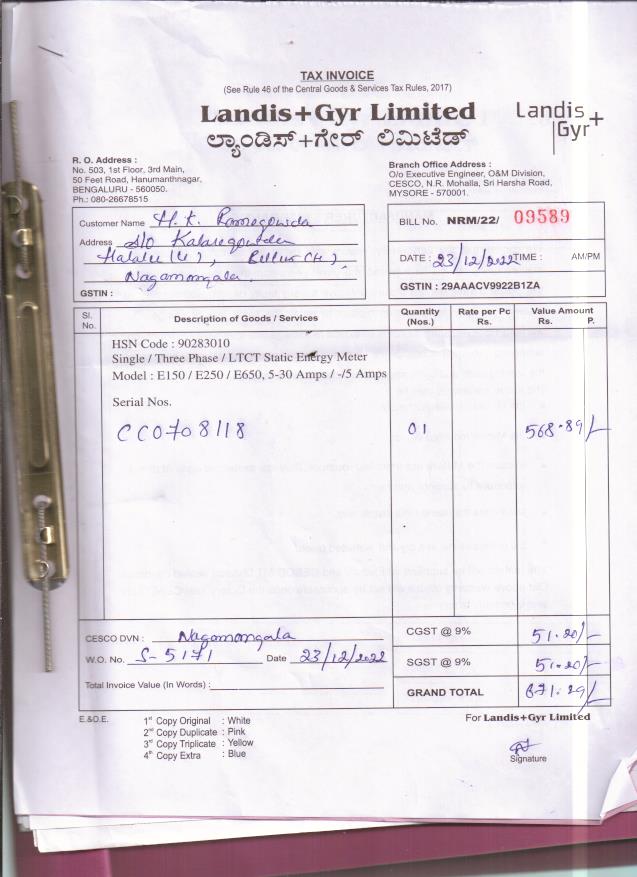 TAX INVOICE
(See Rule 46 of the Central Goods & Services Tax Rules, 2017)
Landis+Gyr Limited
ಲ್ಯಾಂಡಿಸ್+ಗೇರ್ ಲಿಮಿಟೆಡ್
Landis+
Gyr
R. O. Address :
No. 503, 1st Floor, 3rd Main,
50 Feet Road, Hanumanthnagar,
BENGALURU - 560050.
Ph.: 080-26678515
Branch Office Address :
O/o Executive Engineer, O&M Division,
CESCO, N.R. Mohalla, Sri Harsha Road,
MYSORE - 570001.
Customer Name H. K. Ramegowda
Address S/o Kalaregowda
Halalu (V), Bellur (H),
Nagamangala.
GSTIN :
BILL No. NRM/22/ 09589
DATE : 23/12/2022 TIME : AM/PM
GSTIN : 29AAACV9922B1ZA
Sl. No. Description of Goods / Services Quantity (Nos.) Rate per Pc Rs. Value Amount Rs. P.
HSN Code : 90283010
Single / Three Phase / LTCT Static Energy Meter
Model : E150 / E250 / E650, 5-30 Amps / -/5 Amps
Serial Nos.
CC0708118 01 568.89/-
CESCO DVN : Nagamangala
W.O. No. S-5171 Date 23/12/2022
Total Invoice Value (In Words) :
CGST @ 9% 51.20/-
SGST @ 9% 51.20/-
GRAND TOTAL 671.29/-
E.&O.E.
1st Copy Original : White
2nd Copy Duplicate : Pink
3rd Copy Triplicate : Yellow
4th Copy Extra : Blue
For Landis+Gyr Limited
Signature